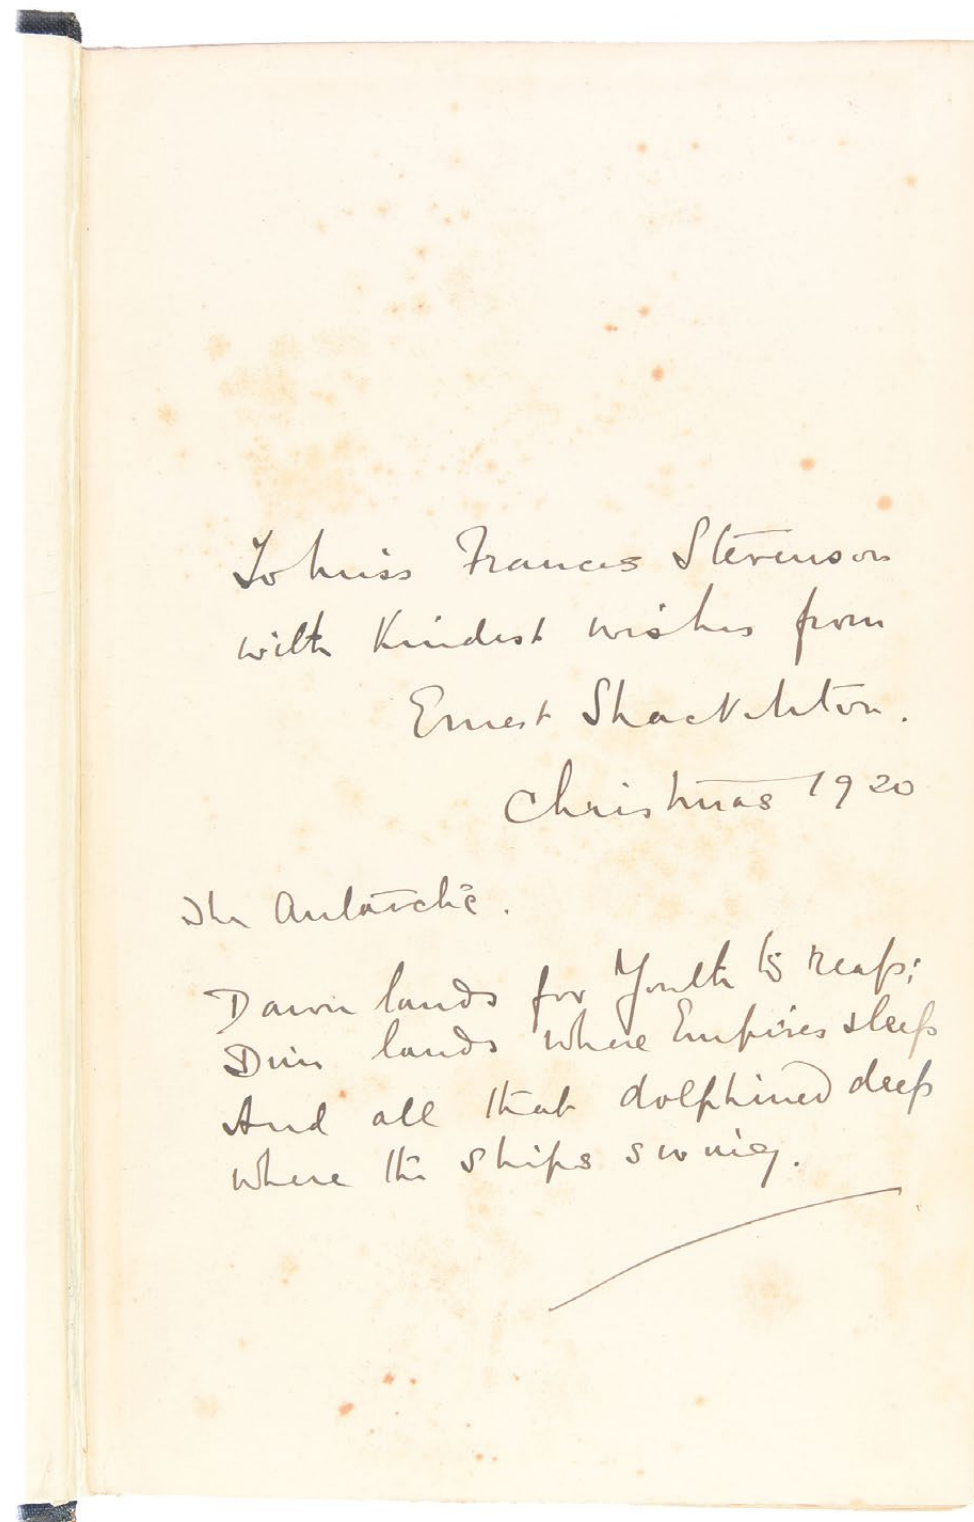 To Miss Frances Stevenson
with Kindest wishes from
Ernest Shackleton.
Christmas 1920
The Antarctic.
Dawn lands for Youth to reap;
Dim lands where Empires sleep
And all that dolphined deep
where the ships swing.